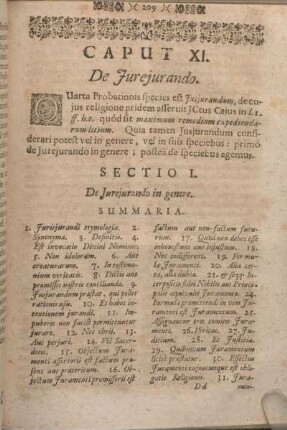 209
CAPUT XI.
De Jurejurando.
QUarta Probationis species est Jusjurandum, de cujus religione pridem asseruit JCtus Cajus in l. 1.
ff. h.t. quòd sit maximum remedium expediendarum litium. Quia tamen Jusjurandum considerari potest vel in genere, vel in suis speciebus: primò
de Jurejurando in genere; posteà de speciebus agemus.
SECTIO I.
De Jurejurando in genere.
SUMMARIA.
1. Jurisjurandi etymologia. 2.
Synonyma. 3. Definitio. 4.
Est invocatio Divini Nominis,
5. Non idolorum. 6. Aut
creaturarum. 7. In testimonium veritatis. 8. Dictis aut
promissis nostris concilianda. 9.
Jusjurandum præstat, qui potest
rationis. 10. Et habet intentionem jurandi. 11. Impuberes non facilè permittuntur
jurare. 12. Nec ebrii. 13.
Aut perjuri. 14. Vel Sacerdotes. 15. Objectum Juramenti assertorii est factum præsens aut præteritum. 16. Objectum Juramenti promissorii est
factum aut non-factum futurum. 17. Quod non debet esse
inhonestum aut injustum. 18.
Nec indifferens. 19. Formula Juramenti. 20. Alia certa, alia dubia. 21. & seqq.
Formula promittendi in vim Juramenti est Juramentum. 25.
Assignantur tres comites Juramenti. 26. Veritas. 27. Judicium. 28. Et Justitia.
29. Quibuscum Juramentum
licitè præstatur. 30. Effectus
Juramenti cujuscunque est obligatio Religionis. 31. Juramen-
D d